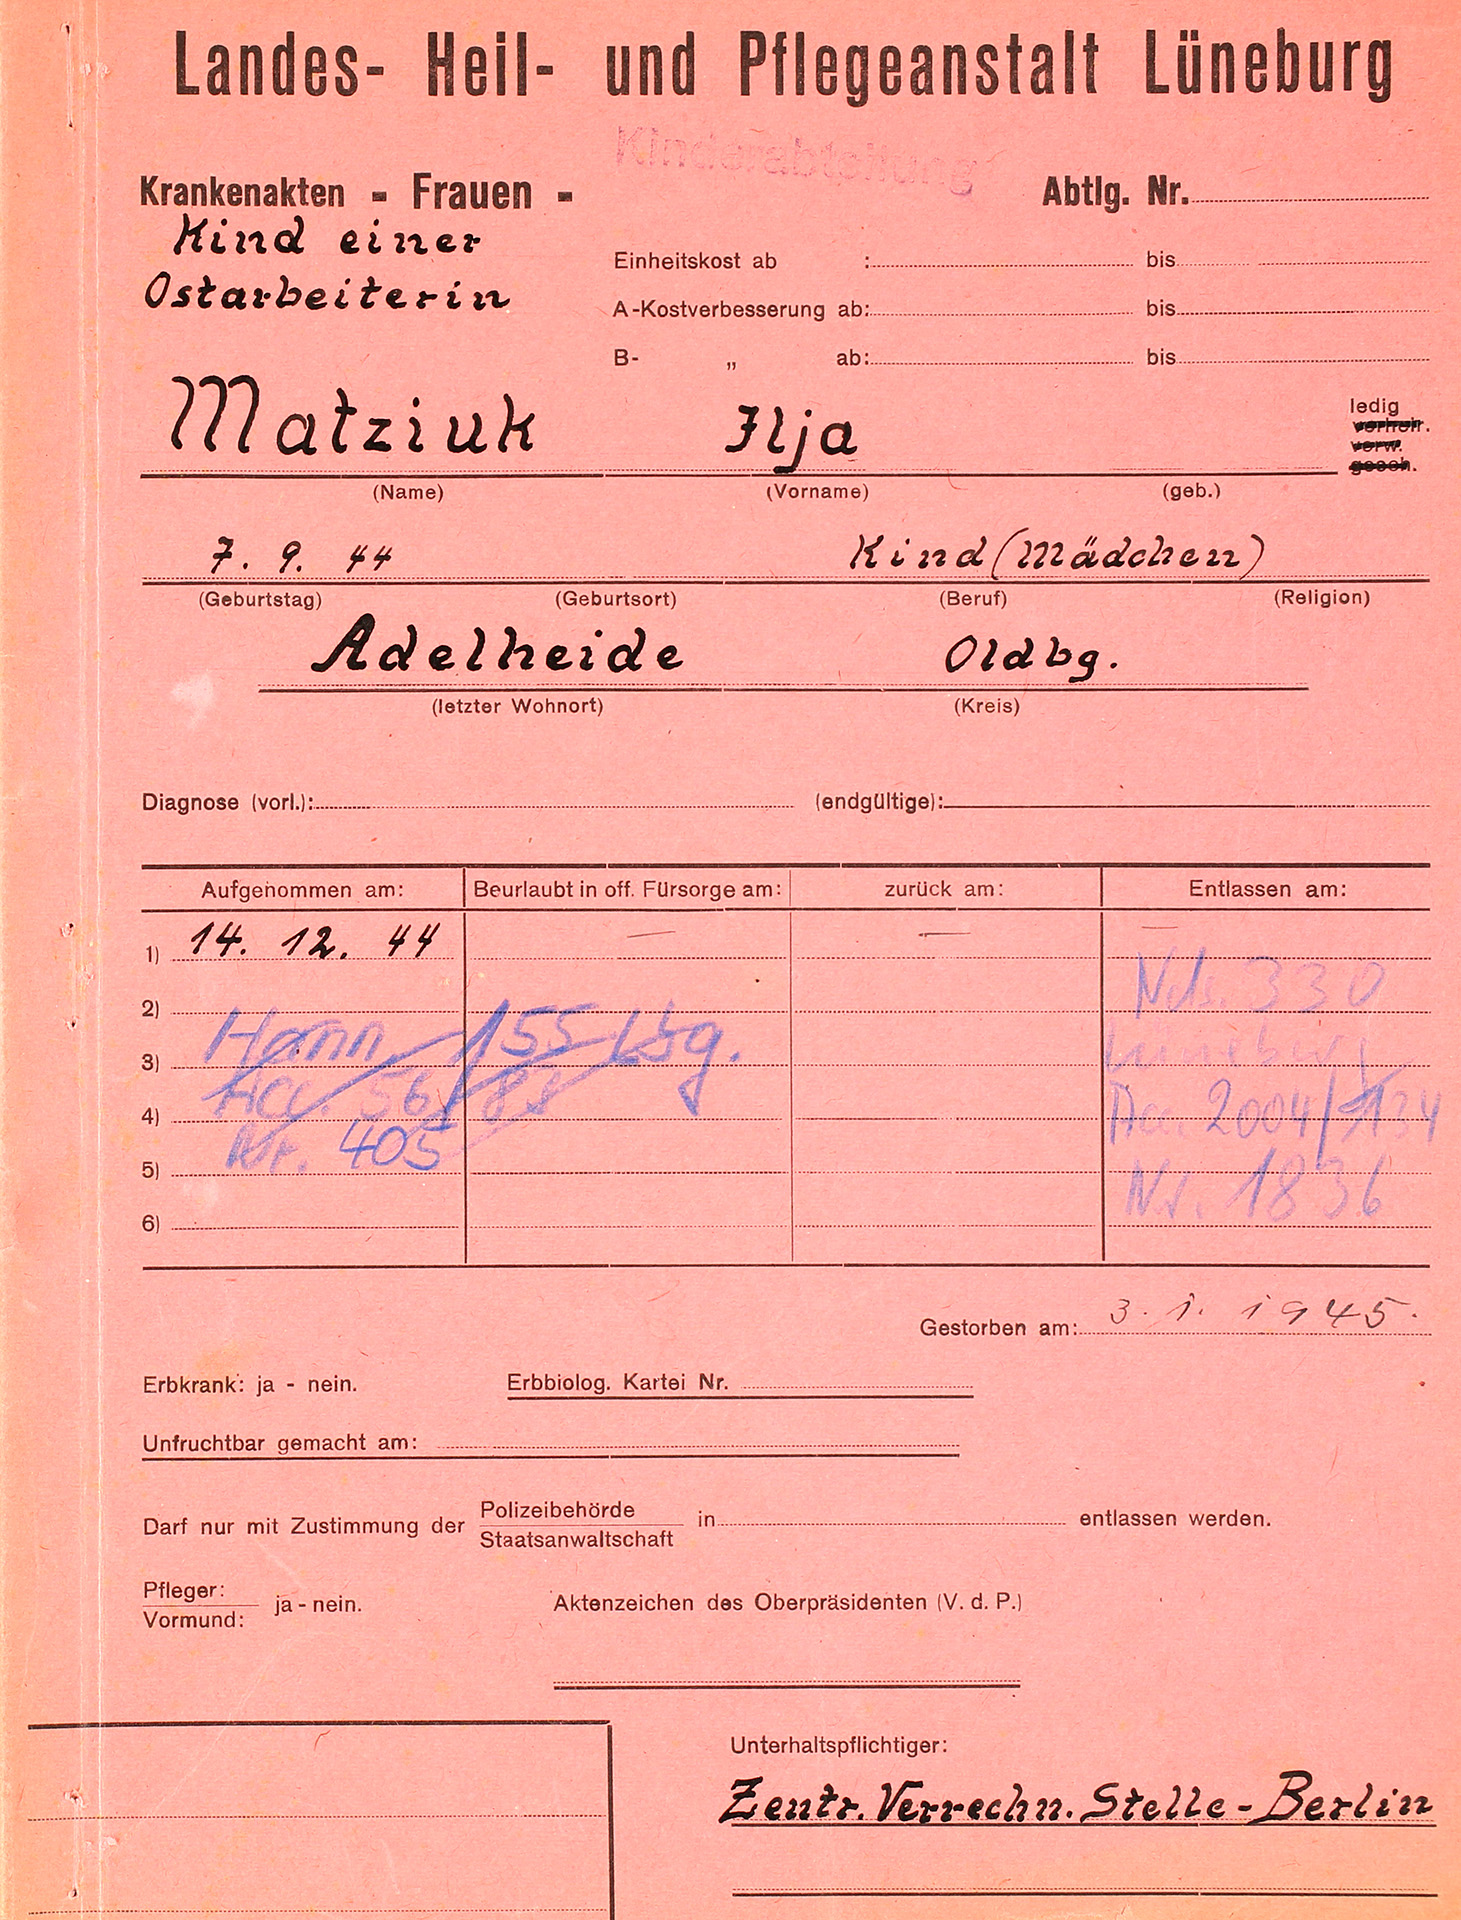 Landes- Heil- und Pflegeanstalt Lüneburg
Kinderabteilung
Krankenakten - Frauen -
Abtlg. Nr.
Kind einer
Ostarbeiterin
Einheitskost ab : bis
A-Kostverbesserung ab: bis
B- „ ab: bis
Matziuk Ilja
ledig
verheir.
verw.
gesch.
(Name) (Vorname) (geb.)
7. 9. 44 Kind (Mädchen)
(Geburtstag) (Geburtsort) (Beruf) (Religion)
Adelheide Oldbg.
(letzter Wohnort) (Kreis)
Diagnose (vorl.): (endgültige):
Aufgenommen am: Beurlaubt in off. Fürsorge am: zurück am: Entlassen am:
1) 14. 12. 44 — — —
Nds. 330
2)
Hann 155 Lbg.
Lüneburg
3)
Acc. 56/83
Acc. 2004/134
4)
Nr. 405
5)
Nr. 1836
6)
Gestorben am: 3. 1. 1945.
Erbkrank: ja - nein. Erbbiolog. Kartei Nr.
Unfruchtbar gemacht am:
Darf nur mit Zustimmung der Polizeibehörde in entlassen werden.
Staatsanwaltschaft
Pfleger:
Vormund: ja - nein. Aktenzeichen des Oberpräsidenten (V. d. P.)
Unterhaltspflichtiger:
Zentr. Verrechn. Stelle - Berlin